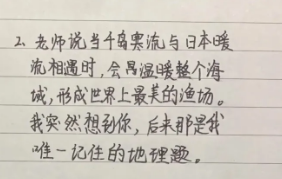 2. 老师说当千岛寒流与日本暖
流相遇时，会温暖整个海
域，形成世界上最美的渔场。
我突然想到你，后来那是我
唯一记住的地理题。